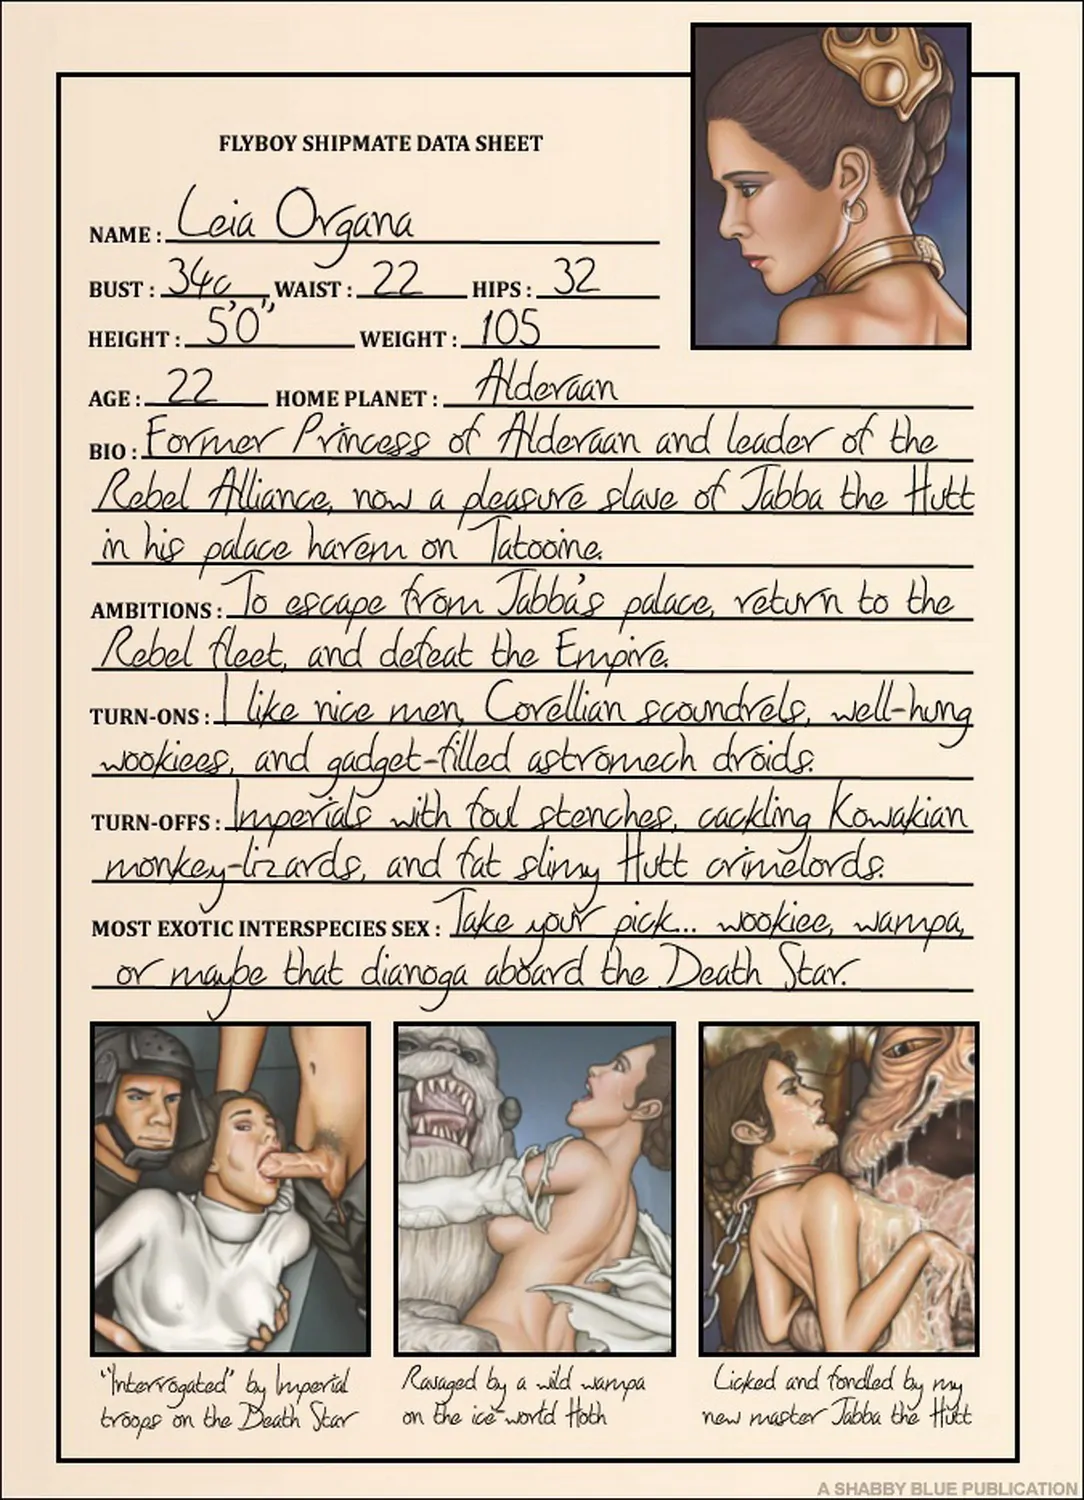 FLYBOY SHIPMATE DATA SHEET
NAME : Leia Organa
BUST : 34c WAIST : 22 HIPS : 32
HEIGHT : 5'0" WEIGHT : 105
AGE : 22 HOME PLANET : Alderaan
BIO : Former Princess of Alderaan and leader of the
Rebel Alliance, now a pleasure slave of Jabba the Hutt
in his palace harem on Tatooine.
AMBITIONS : To escape from Jabba's palace, return to the
Rebel fleet, and defeat the Empire.
TURN-ONS : I like nice men, Corellian scoundrels, well-hung
wookiees, and gadget-filled astromech droids.
TURN-OFFS : Imperials with foul stenches, cackling Kowakian
monkey-lizards, and fat slimy Hutt crimelords.
MOST EXOTIC INTERSPECIES SEX : Take your pick... wookiee, wampa,
or maybe that dianoga aboard the Death Star.
"Interrogated" by Imperial
troops on the Death Star
Ravaged by a wild wampa
on the ice world Hoth
Licked and fondled by my
new master Jabba the Hutt
A SHABBY BLUE PUBLICATION